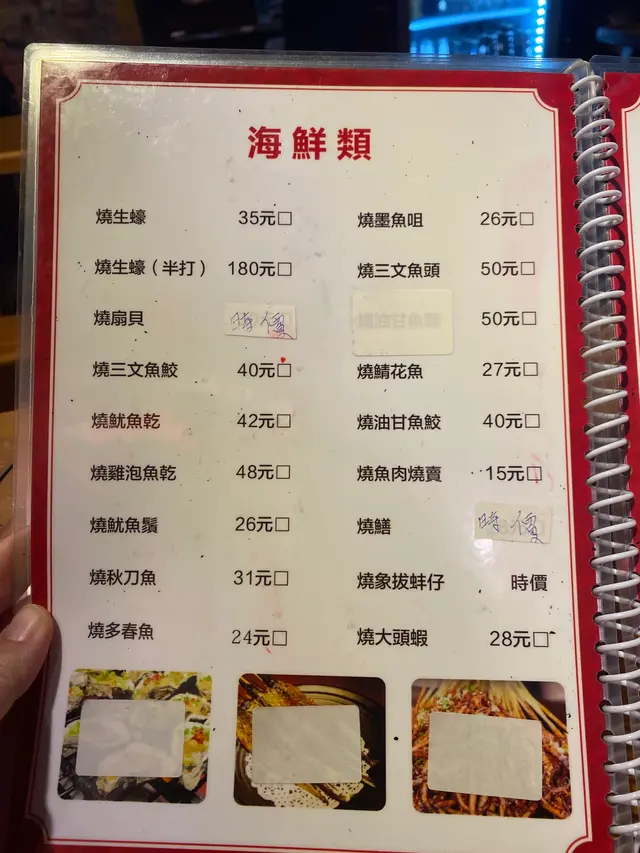 海鮮類
燒生蠔 35元□
燒生蠔（半打） 180元□
燒扇貝 時價
燒三文魚鮫 40元□
燒魷魚乾 42元□
燒雞泡魚乾 48元□
燒魷魚鬚 26元□
燒秋刀魚 31元□
燒多春魚 24元□
燒墨魚咀 26元□
燒三文魚頭 50元□
50元□
燒鯖花魚 27元□
燒油甘魚鮫 40元□
燒魚肉燒賣 15元□
燒鱔 時價
燒象拔蚌仔 時價
燒大頭蝦 28元□